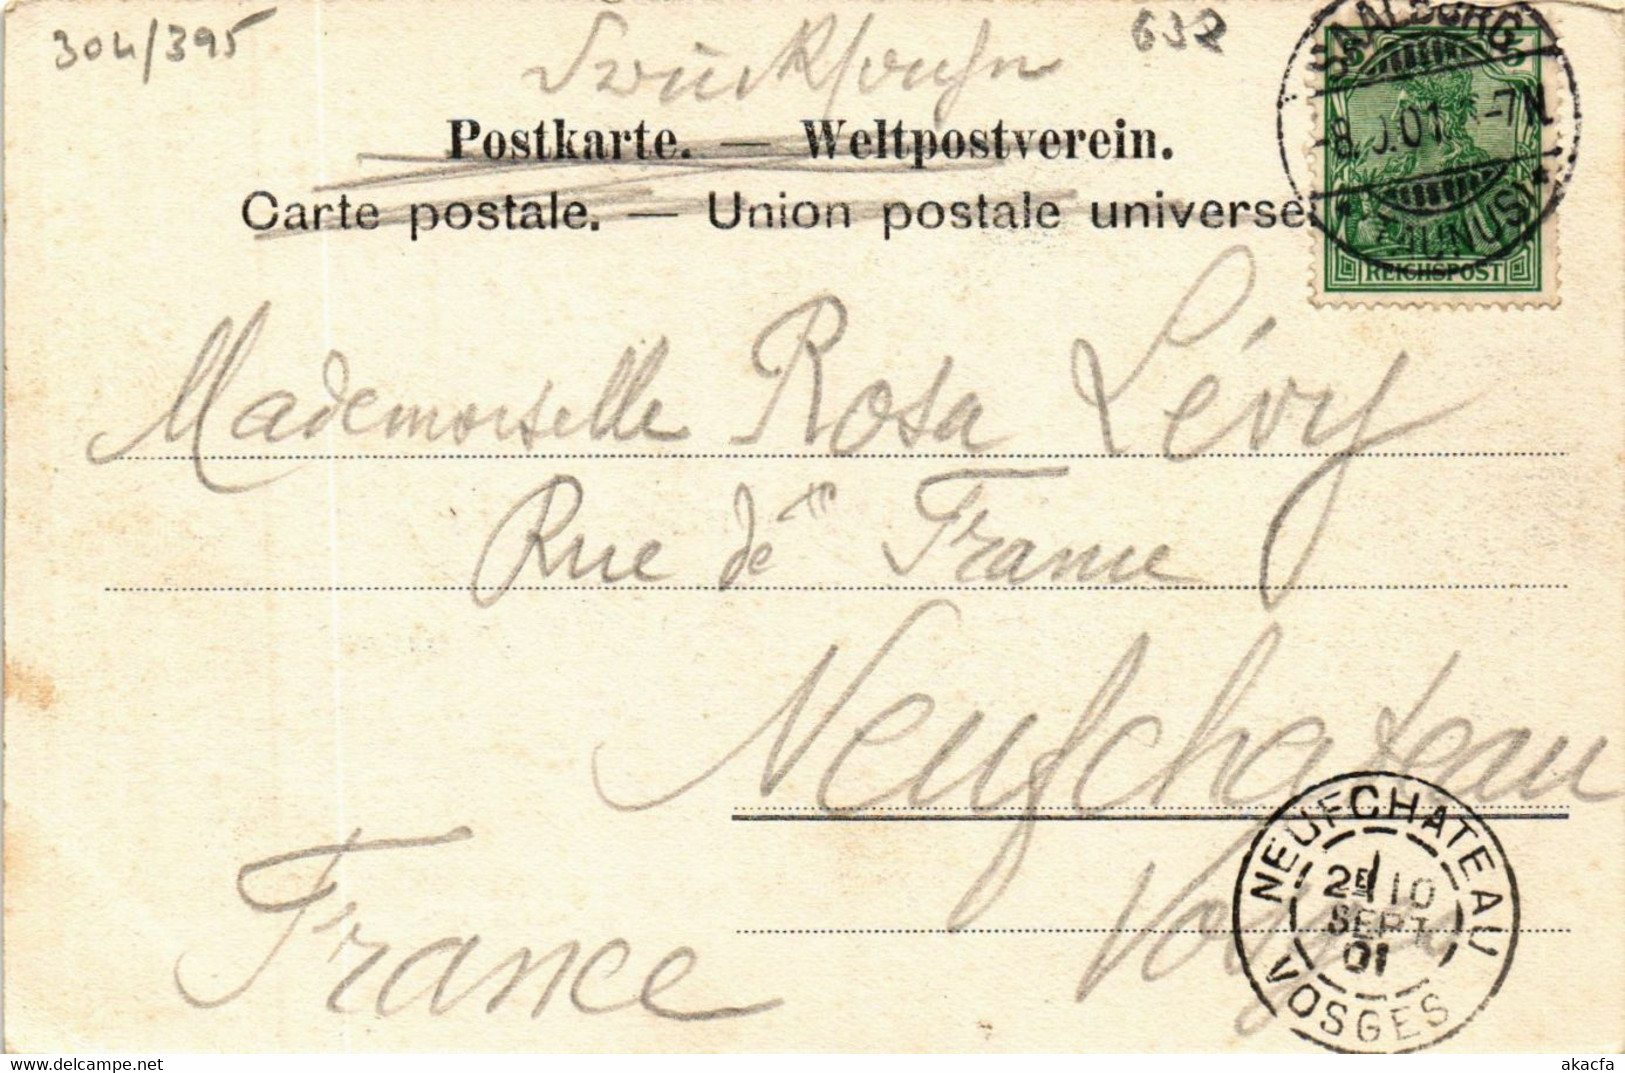 304/395
Drucksachen
632
Postkarte. — Weltpostverein.
Carte postale. — Union postale universe
SAALBURG
(TAUNUS)
8.9.01 -7N
5 5
REICHSPOST
Mademoiselle Rosa Lévy
Rue de France
Neufchateau
Vosges
France
NEUFCHATEAU
2E 10
SEPT
01
VOSGES
akacfa